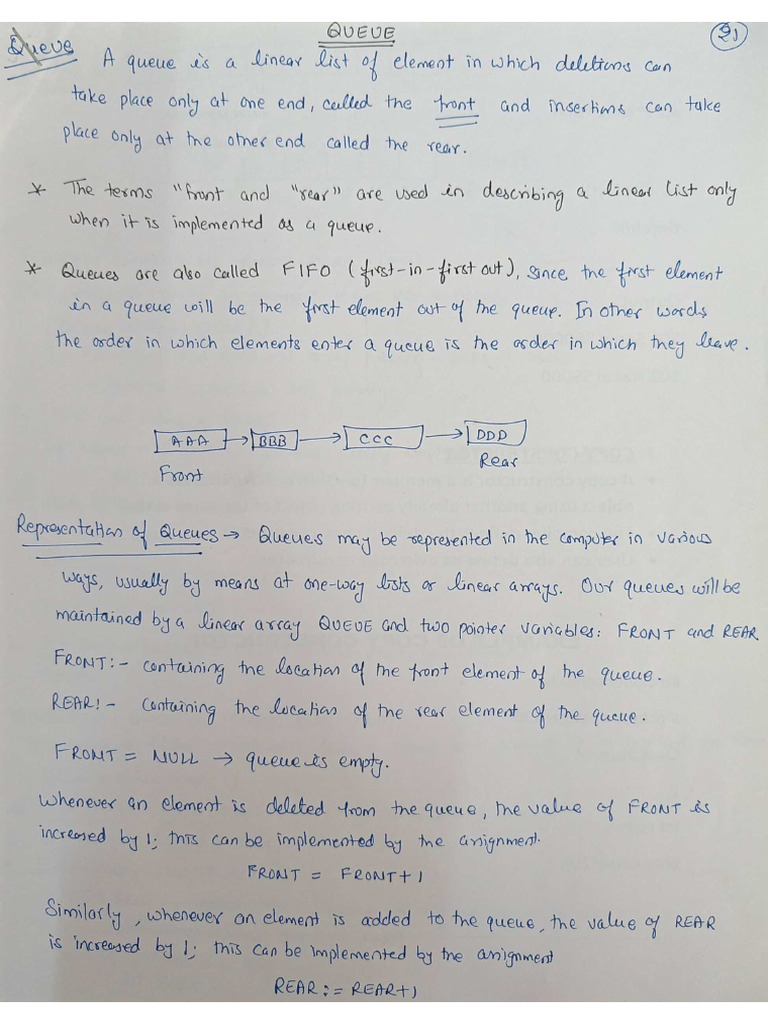 QUEUE
21
Queue
A queue is a linear list of element in which deletions can
take place only at one end, called the front and insertions can take
place only at the other end called the rear.
* The terms "front and "rear" are used in describing a linear list only
when it is implemented as a queue.
* Queues are also called FIFO (first-in-first out), since the first element
in a queue will be the first element out of the queue. In other words
the order in which elements enter a queue is the order in which they leave.
AAA → BBB → CCC → DDD
Front Rear
Representation of Queues → Queues may be represented in the computer in various
ways, usually by means at one-way lists or linear arrays. Our queues will be
maintained by a linear array QUEUE and two pointer variables: FRONT and REAR
FRONT:- containing the location of the front element of the queue.
REAR:- Containing the location of the rear element of the queue.
FRONT = NULL → queue is empty.
Whenever an element is deleted from the queue, the value of FRONT is
increased by 1; this can be implemented by the assignment.
FRONT = FRONT+1
Similarly, whenever an element is added to the queue, the value of REAR
is increased by 1; this can be implemented by the assignment
REAR := REAR+1